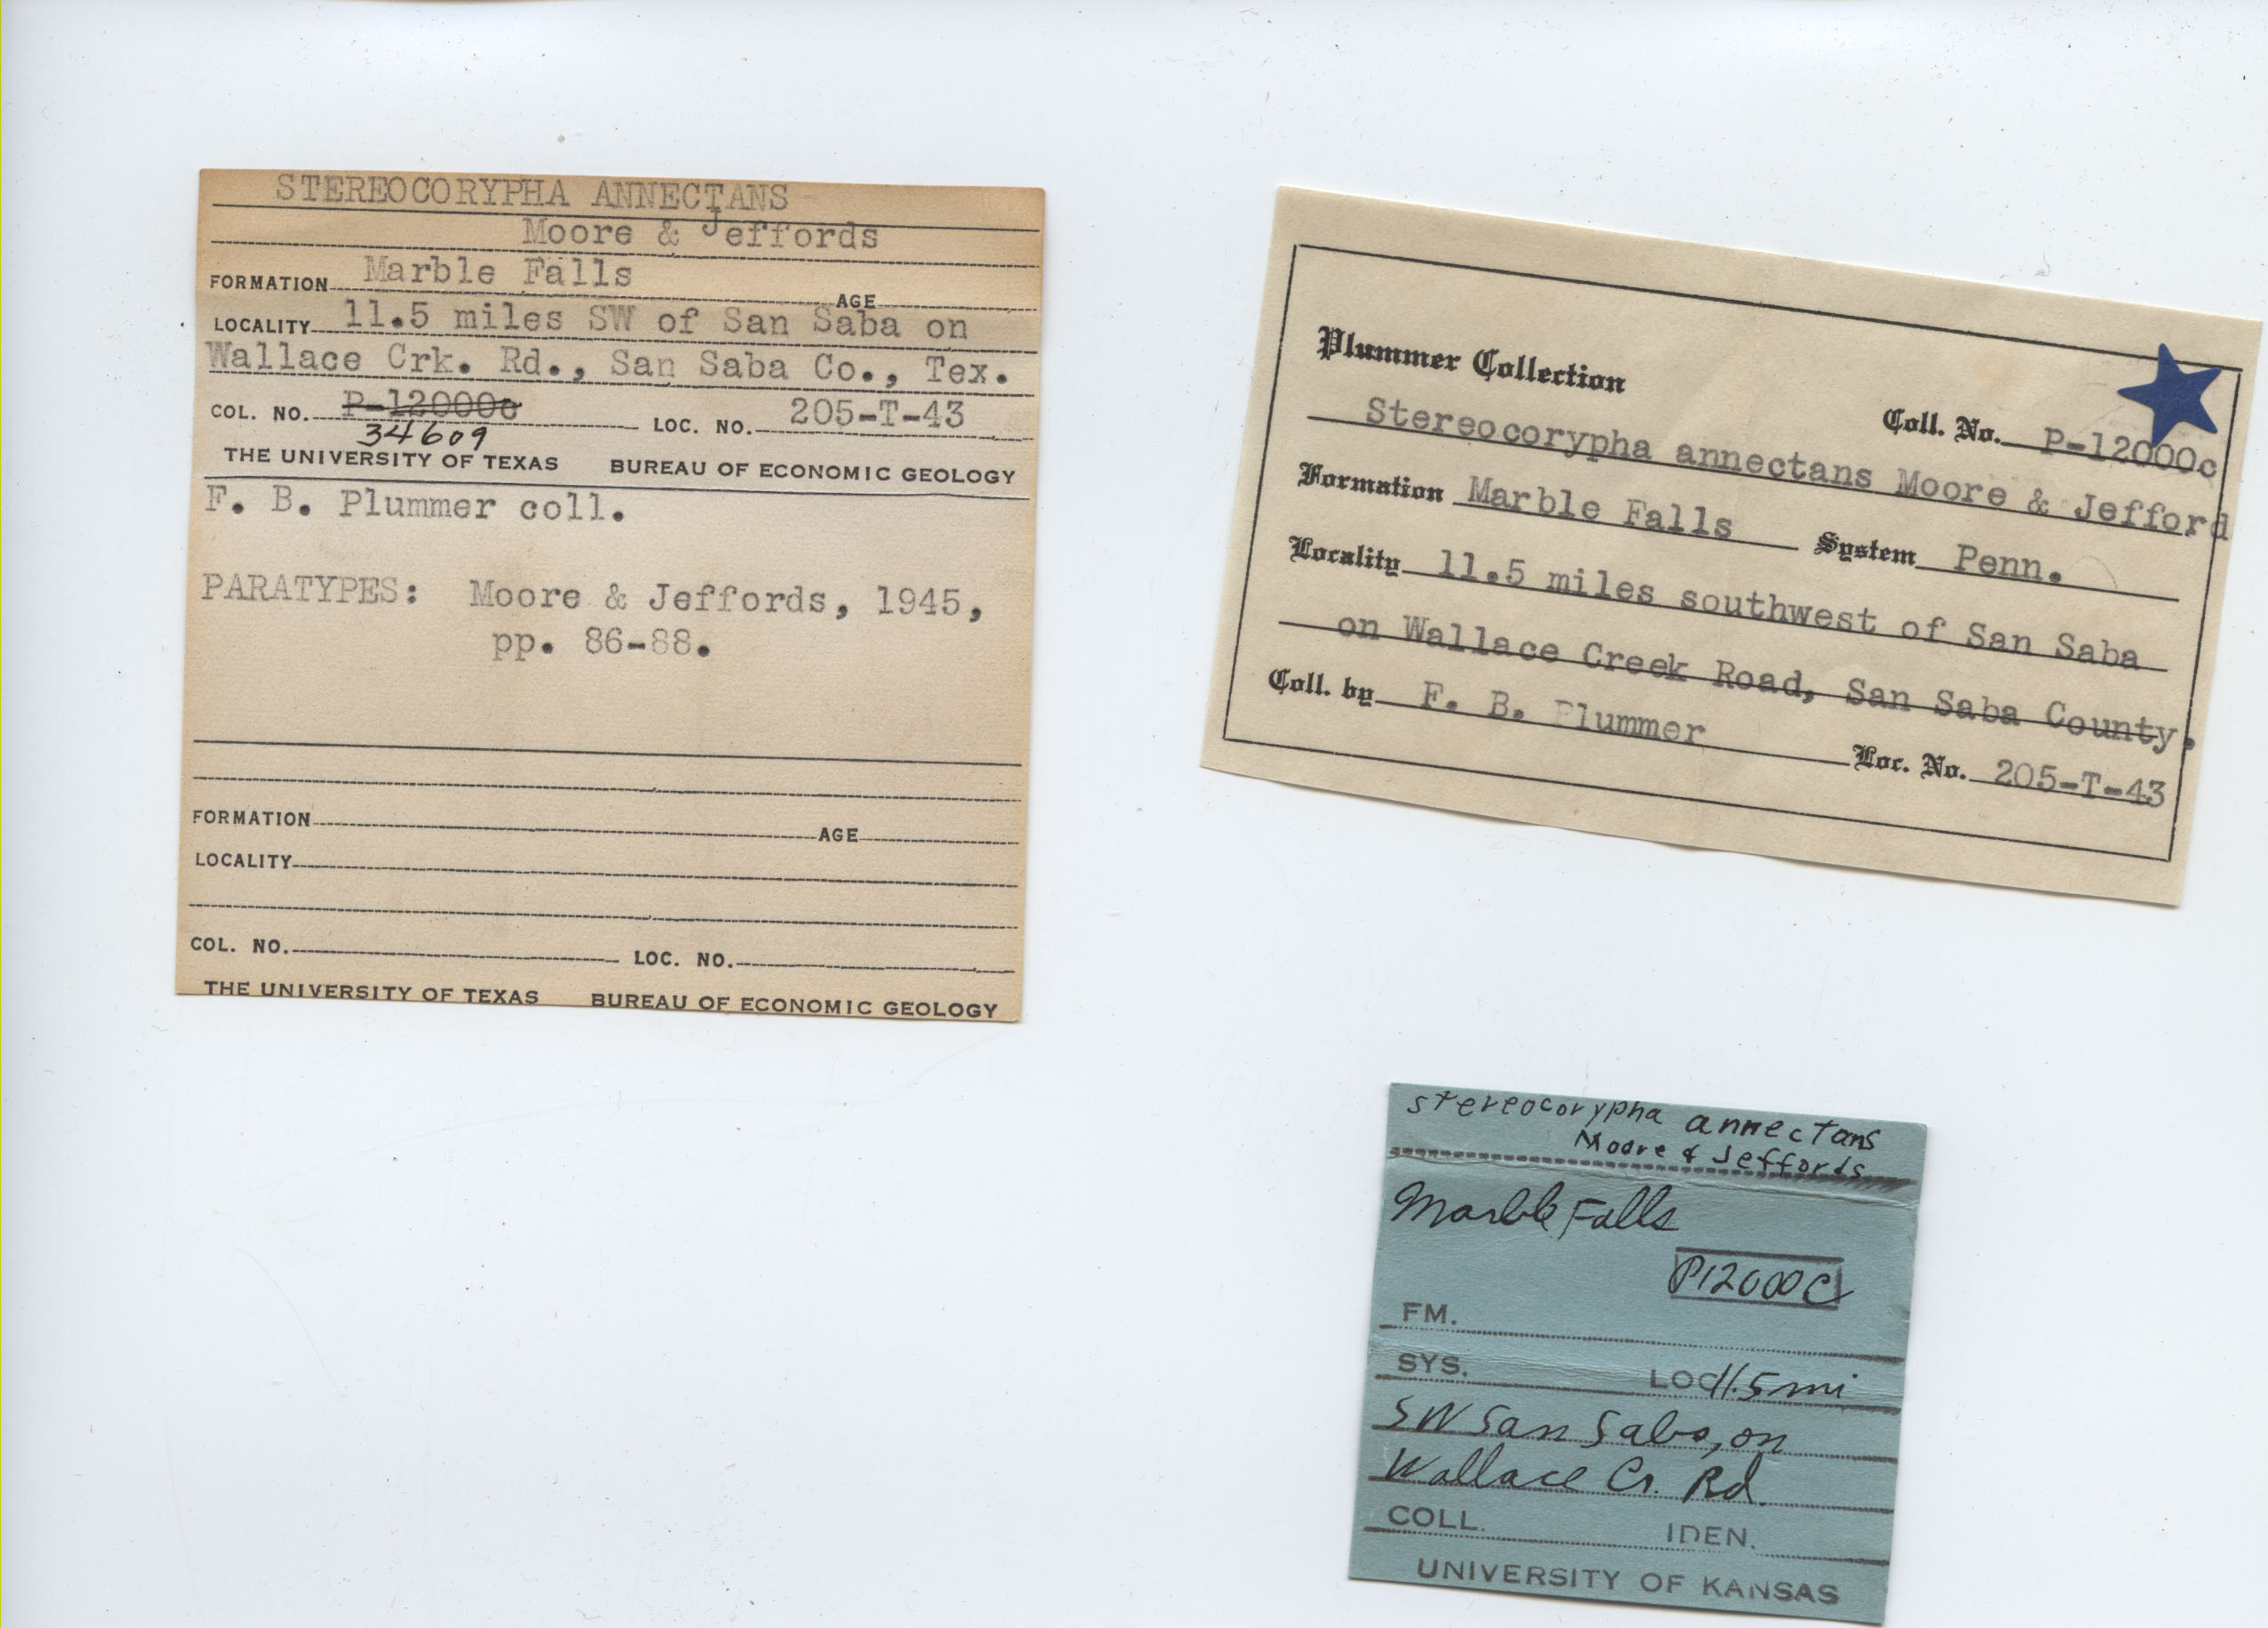 STEREOCORYPHA ANNECTANS
Moore & Jeffords
FORMATION Marble Falls AGE
LOCALITY 11.5 miles SW of San Saba on
Wallace Crk. Rd., San Saba Co., Tex.
COL. NO. P-12000c LOC. NO. 205-T-43
34609
THE UNIVERSITY OF TEXAS BUREAU OF ECONOMIC GEOLOGY
F. B. Plummer coll.
PARATYPES: Moore & Jeffords, 1945,
pp. 86-88.
FORMATION AGE
LOCALITY
COL. NO. LOC. NO.
THE UNIVERSITY OF TEXAS BUREAU OF ECONOMIC GEOLOGY
Plummer Collection
Coll. No. P-12000c
Stereocorypha annectans Moore & Jefford
Formation Marble Falls System Penn.
Locality 11.5 miles southwest of San Saba
on Wallace Creek Road, San Saba County.
Coll. by F. B. Plummer Loc. No. 205-T-43
stereocorypha annectans
Moore & Jeffords
Marble Falls
P12000C
FM.
SYS. LOC 11.5 mi
SW San Saba, on
Wallace Cr. Rd.
COLL. IDEN.
UNIVERSITY OF KANSAS